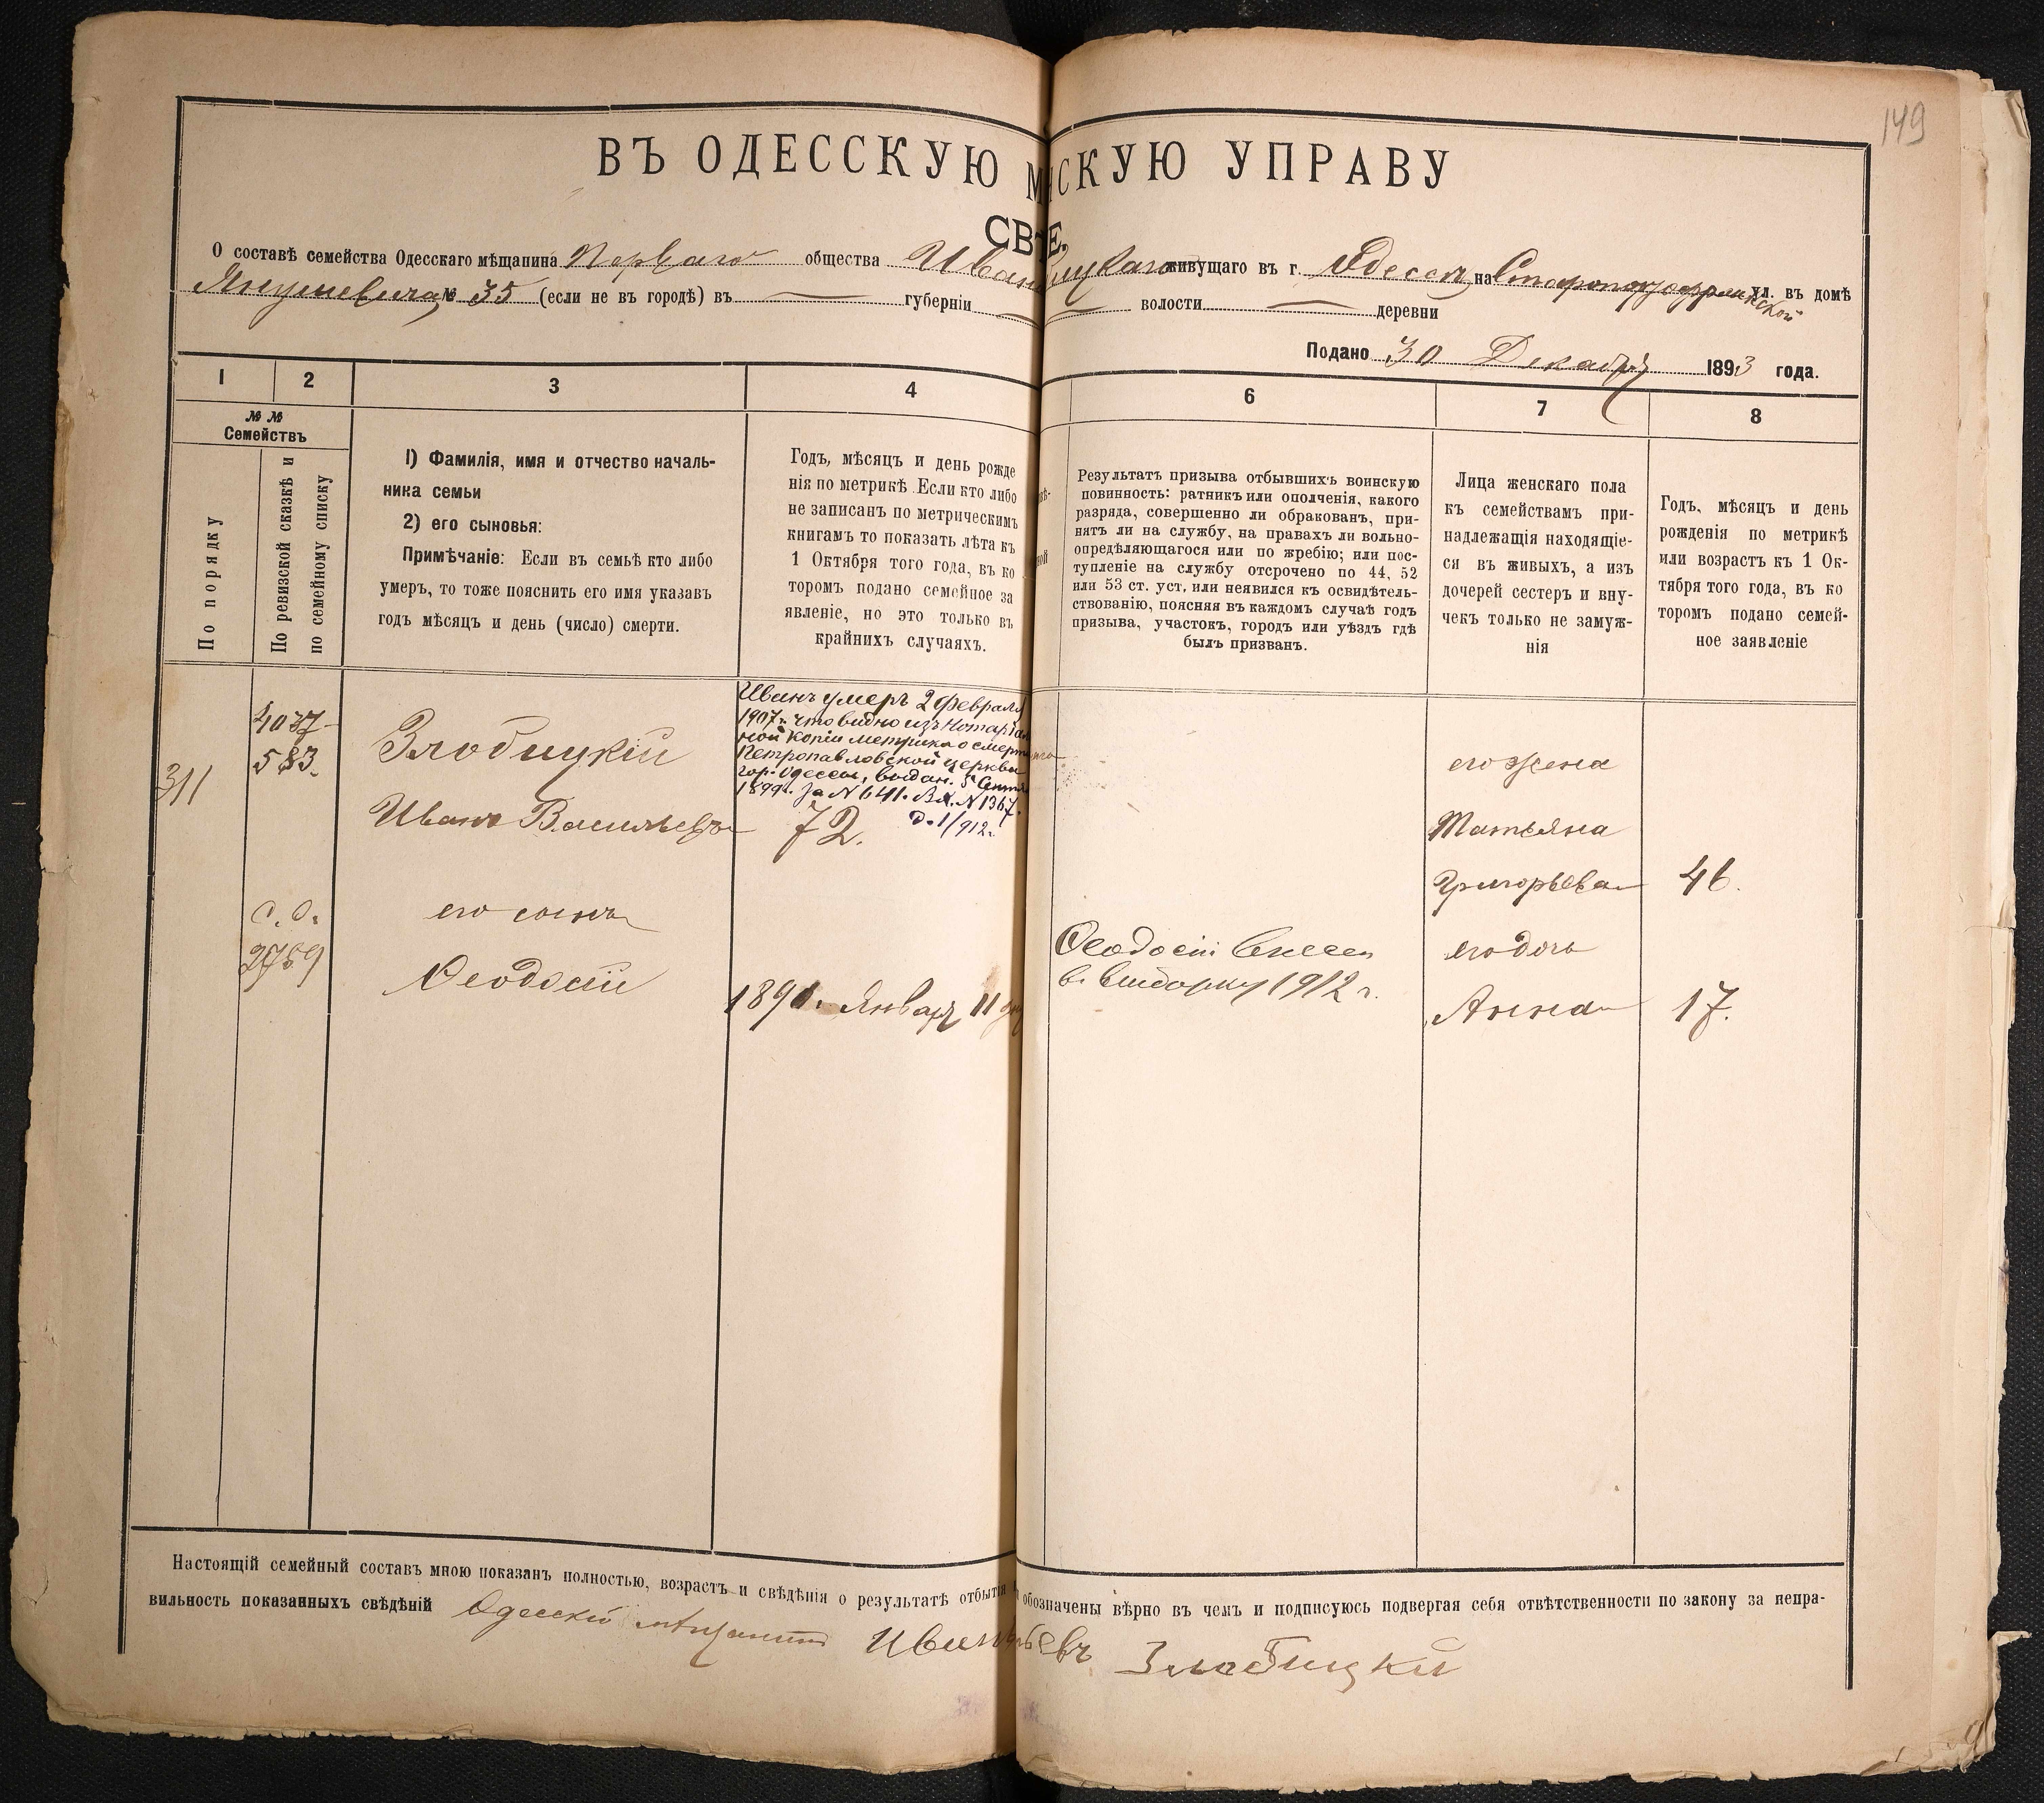 149
ВЪ ОДЕССКУЮ М СКУЮ УПРАВУ
СВ Е,
О составѣ семейства Одесскаго мѣщанина Перваго общества Иван ицкаго живущаго въ г. Одессѣ на Старопортофранкской ул. въ домѣ
Янушевича № 35 (если не въ городѣ) въ губерніи волости деревни
Подано 30 Декабря 1893 года.
1 2 3 4 6 7 8
№ №
Семействъ
По порядку
По ревизской сказкѣ и
по семейному списку
1) Фамилія, имя и отчество началь-
ника семьи
2) его сыновья:
Примѣчаніе: Если въ семьѣ кто либо
умеръ, то тоже пояснить его имя указавъ
годъ мѣсяцъ и день (число) смерти.
Годъ, мѣсяцъ и день рожде
нія по метрикѣ Если кто либо
не записанъ по метрическимъ
книгамъ то показать лѣта къ
1 Октября того года, въ ко
торомъ подано семейное за
явленіе, но это только въ
крайнихъ случаяхъ.
Результатъ призыва отбывшихъ воинскую
повинность: ратникъ или ополченія, какого
разряда, совершенно ли обракованъ, при-
нятъ ли на службу, на правахъ ли вольно-
опредѣляющагося или по жребію; или пос-
тупленіе на службу отсрочено по 44, 52
или 53 ст. уст. или неявился къ освидѣтель-
ствованію, поясняя въ каждомъ случаѣ годъ
призыва, участокъ, городъ или уѣздъ гдѣ
былъ призванъ.
Лица женскаго пола
къ семействамъ при-
надлежащія находящіе-
ся въ живыхъ, а изъ
дочерей сестеръ и вну-
чекъ только не замуж-
нія
Годъ, мѣсяцъ и день
рожденія по метрикѣ
или возрастъ къ 1 Ок-
тября того года, въ ко
торомъ подано семей-
ное заявленіе
311
4037
583.
Злобицкій
Иванъ Васильевъ
Иванъ умеръ 2 Февраля
1907 г. что видно изъ Нотаріаль
ной копіи метрики о смерти его
Петропавловской церкви
гор. Одессы, выдан. 5 Сентя
1899 г. за N 641. Вх. N 1367.
Д. 1/912 г.
72.
его жена
Татьяна
Григорьева
46.
с. о.
2759
его сынъ
Ѳеодосій
1891. Января 11 дня
Ѳеодосій внесен
в выборку 1912 г.
его дочь
Анна
17.
Настоящій семейный составъ мною показанъ полностью, возрастъ и свѣдѣнія о результатѣ отбытія обозначены вѣрно въ чемъ и подписуюсь подвергая себя отвѣтственности по закону за непра-
вильность показанныхъ свѣдѣній Одесскій мѣщанинъ Иван евъ Злобицкій